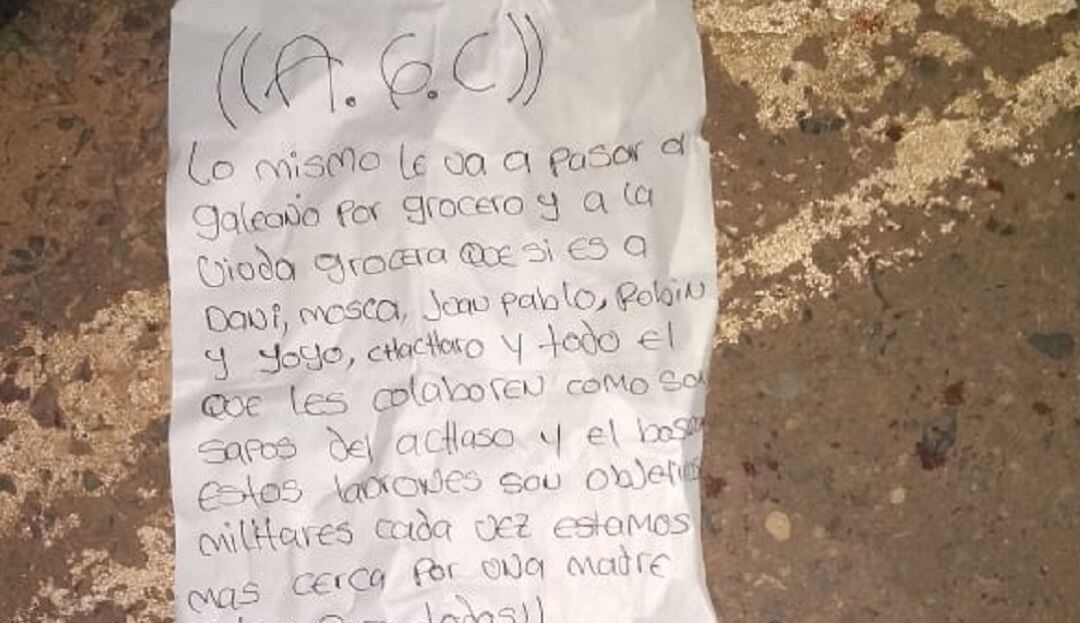 ((A.G.C))
Lo mismo le va a pasar a
galeano por grocero y a la
vioda grocera que si es a
Dani, mosca, Joau pablo, Robin
y yoyo, chacharo y todo el
que les colaboren como son
sapos del achaso y el
estos ladrones son objetivos
militares cada vez estamos
mas cerca por una madre
todas!!